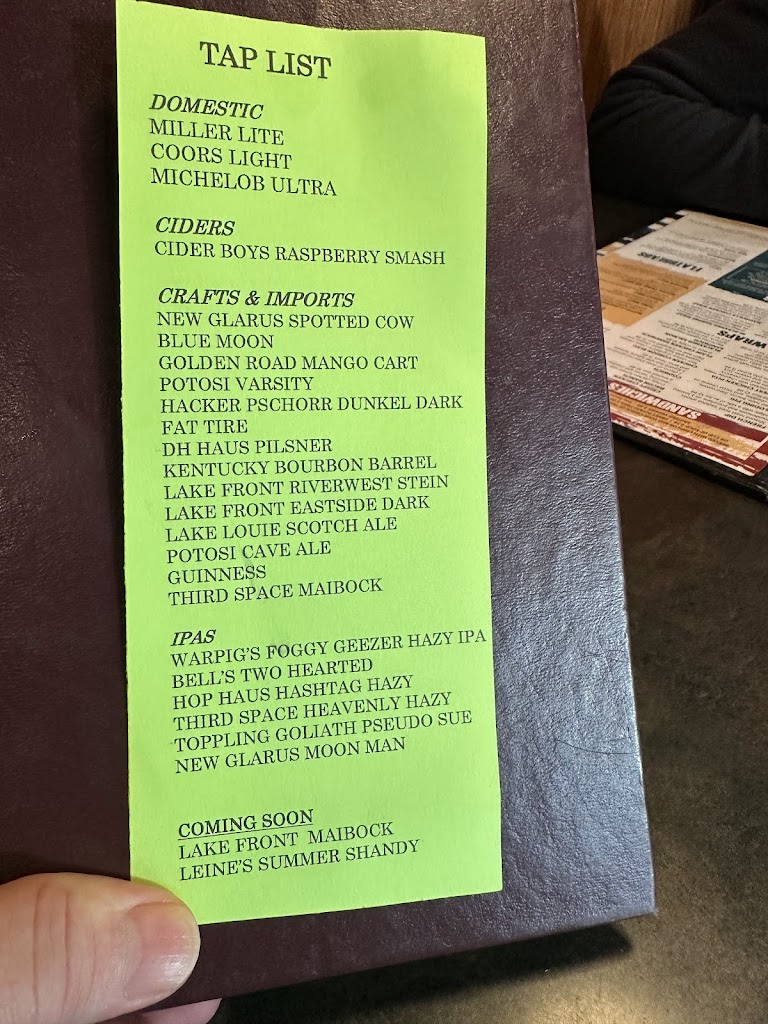 TAP LIST
DOMESTIC
MILLER LITE
COORS LIGHT
MICHELOB ULTRA
CIDERS
CIDER BOYS RASPBERRY SMASH
CRAFTS & IMPORTS
NEW GLARUS SPOTTED COW
BLUE MOON
GOLDEN ROAD MANGO CART
POTOSI VARSITY
HACKER PSCHORR DUNKEL DARK
FAT TIRE
DH HAUS PILSNER
KENTUCKY BOURBON BARREL
LAKE FRONT RIVERWEST STEIN
LAKE FRONT EASTSIDE DARK
LAKE LOUIE SCOTCH ALE
POTOSI CAVE ALE
GUINNESS
THIRD SPACE MAIBOCK
IPAS
WARPIG'S FOGGY GEEZER HAZY IPA
BELL'S TWO HEARTED
HOP HAUS HASHTAG HAZY
THIRD SPACE HEAVENLY HAZY
TOPPLING GOLIATH PSEUDO SUE
NEW GLARUS MOON MAN
COMING SOON
LAKE FRONT MAIBOCK
LEINE'S SUMMER SHANDY
FLATBREADS
WRAPS
SANDWICHES